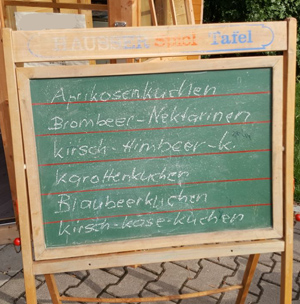 HAUSSER Spiel Tafel
Aprikosenkuchen
Brombeer-Nektarinen
Kirsch-Himbeer-K.
Karottenkuchen
Blaubeerkuchen
Kirsch-käse-kuchen